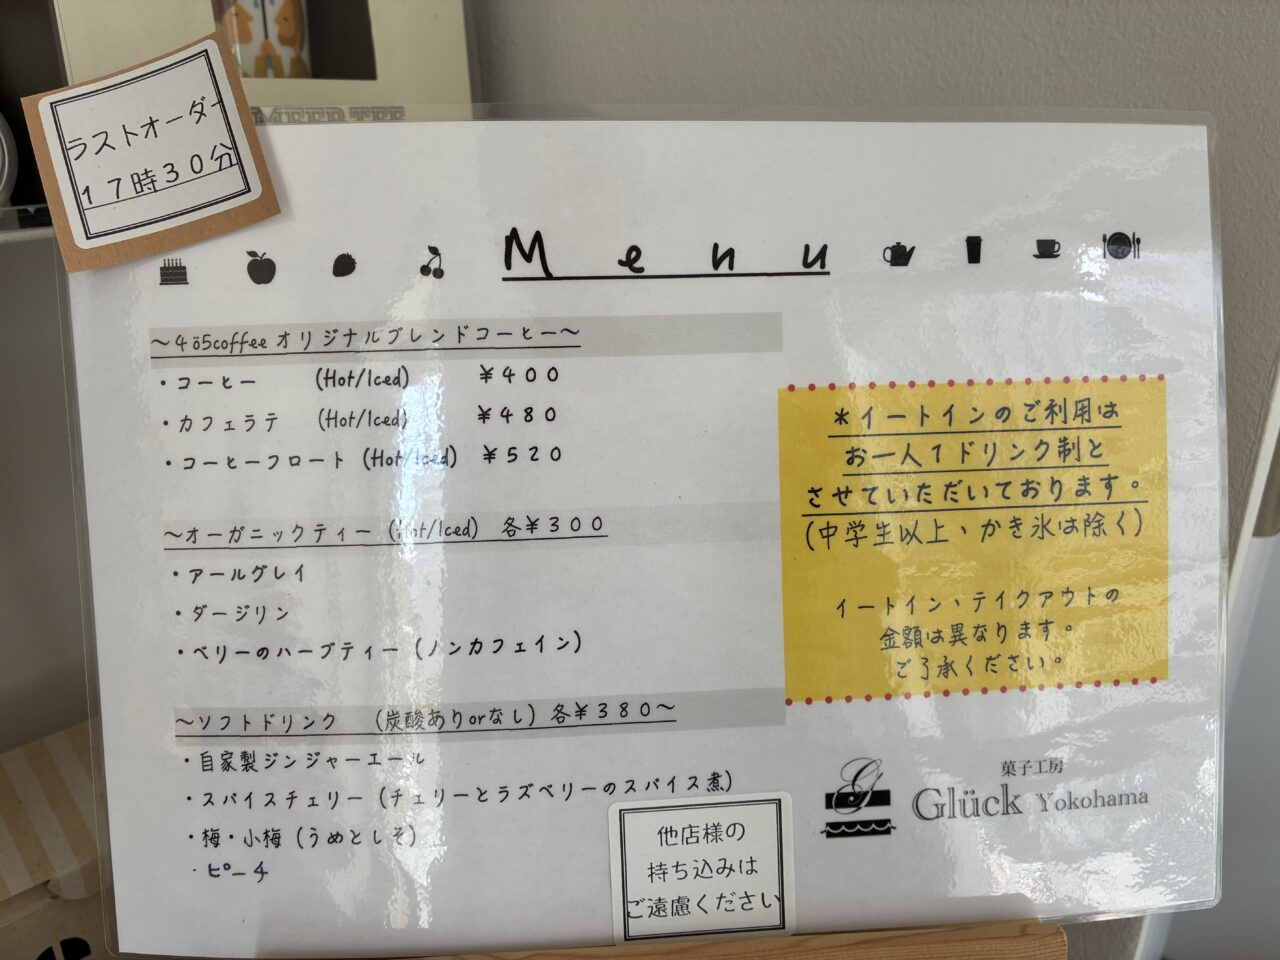 ラストオーダー
17時30分
Menu
～4ö5coffeeオリジナルブレンドコーヒー～
・コーヒー (Hot/Iced) ￥400
・カフェラテ (Hot/Iced) ￥480
・コーヒーフロート (Hot/Iced) ￥520
～オーガニックティー (Hot/Iced) 各￥300
・アールグレイ
・ダージリン
・ベリーのハーブティー (ノンカフェイン)
～ソフトドリンク (炭酸ありorなし) 各￥380～
・自家製ジンジャーエール
・スパイスチェリー (チェリーとラズベリーのスパイス煮)
・梅・小梅 (うめとしそ)
・ピーチ
＊イートインのご利用は
お一人1ドリンク制と
させていただいております。
(中学生以上、かき氷は除く)
イートイン、テイクアウトの
金額は異なります。
ご了承ください。
菓子工房
Glück Yokohama
他店様の
持ち込みは
ご遠慮ください